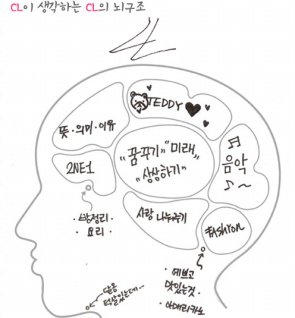 CL이 생각하는 CL의 뇌구조
TEDDY
뜻·의미·이유
"꿈꾸기" "미래"
"상상하기"
음악
2NE1
사랑 나눠주기
FASHION
· 방정리
· 요리
· 예쁘고
맛있는것
· 아메리카노